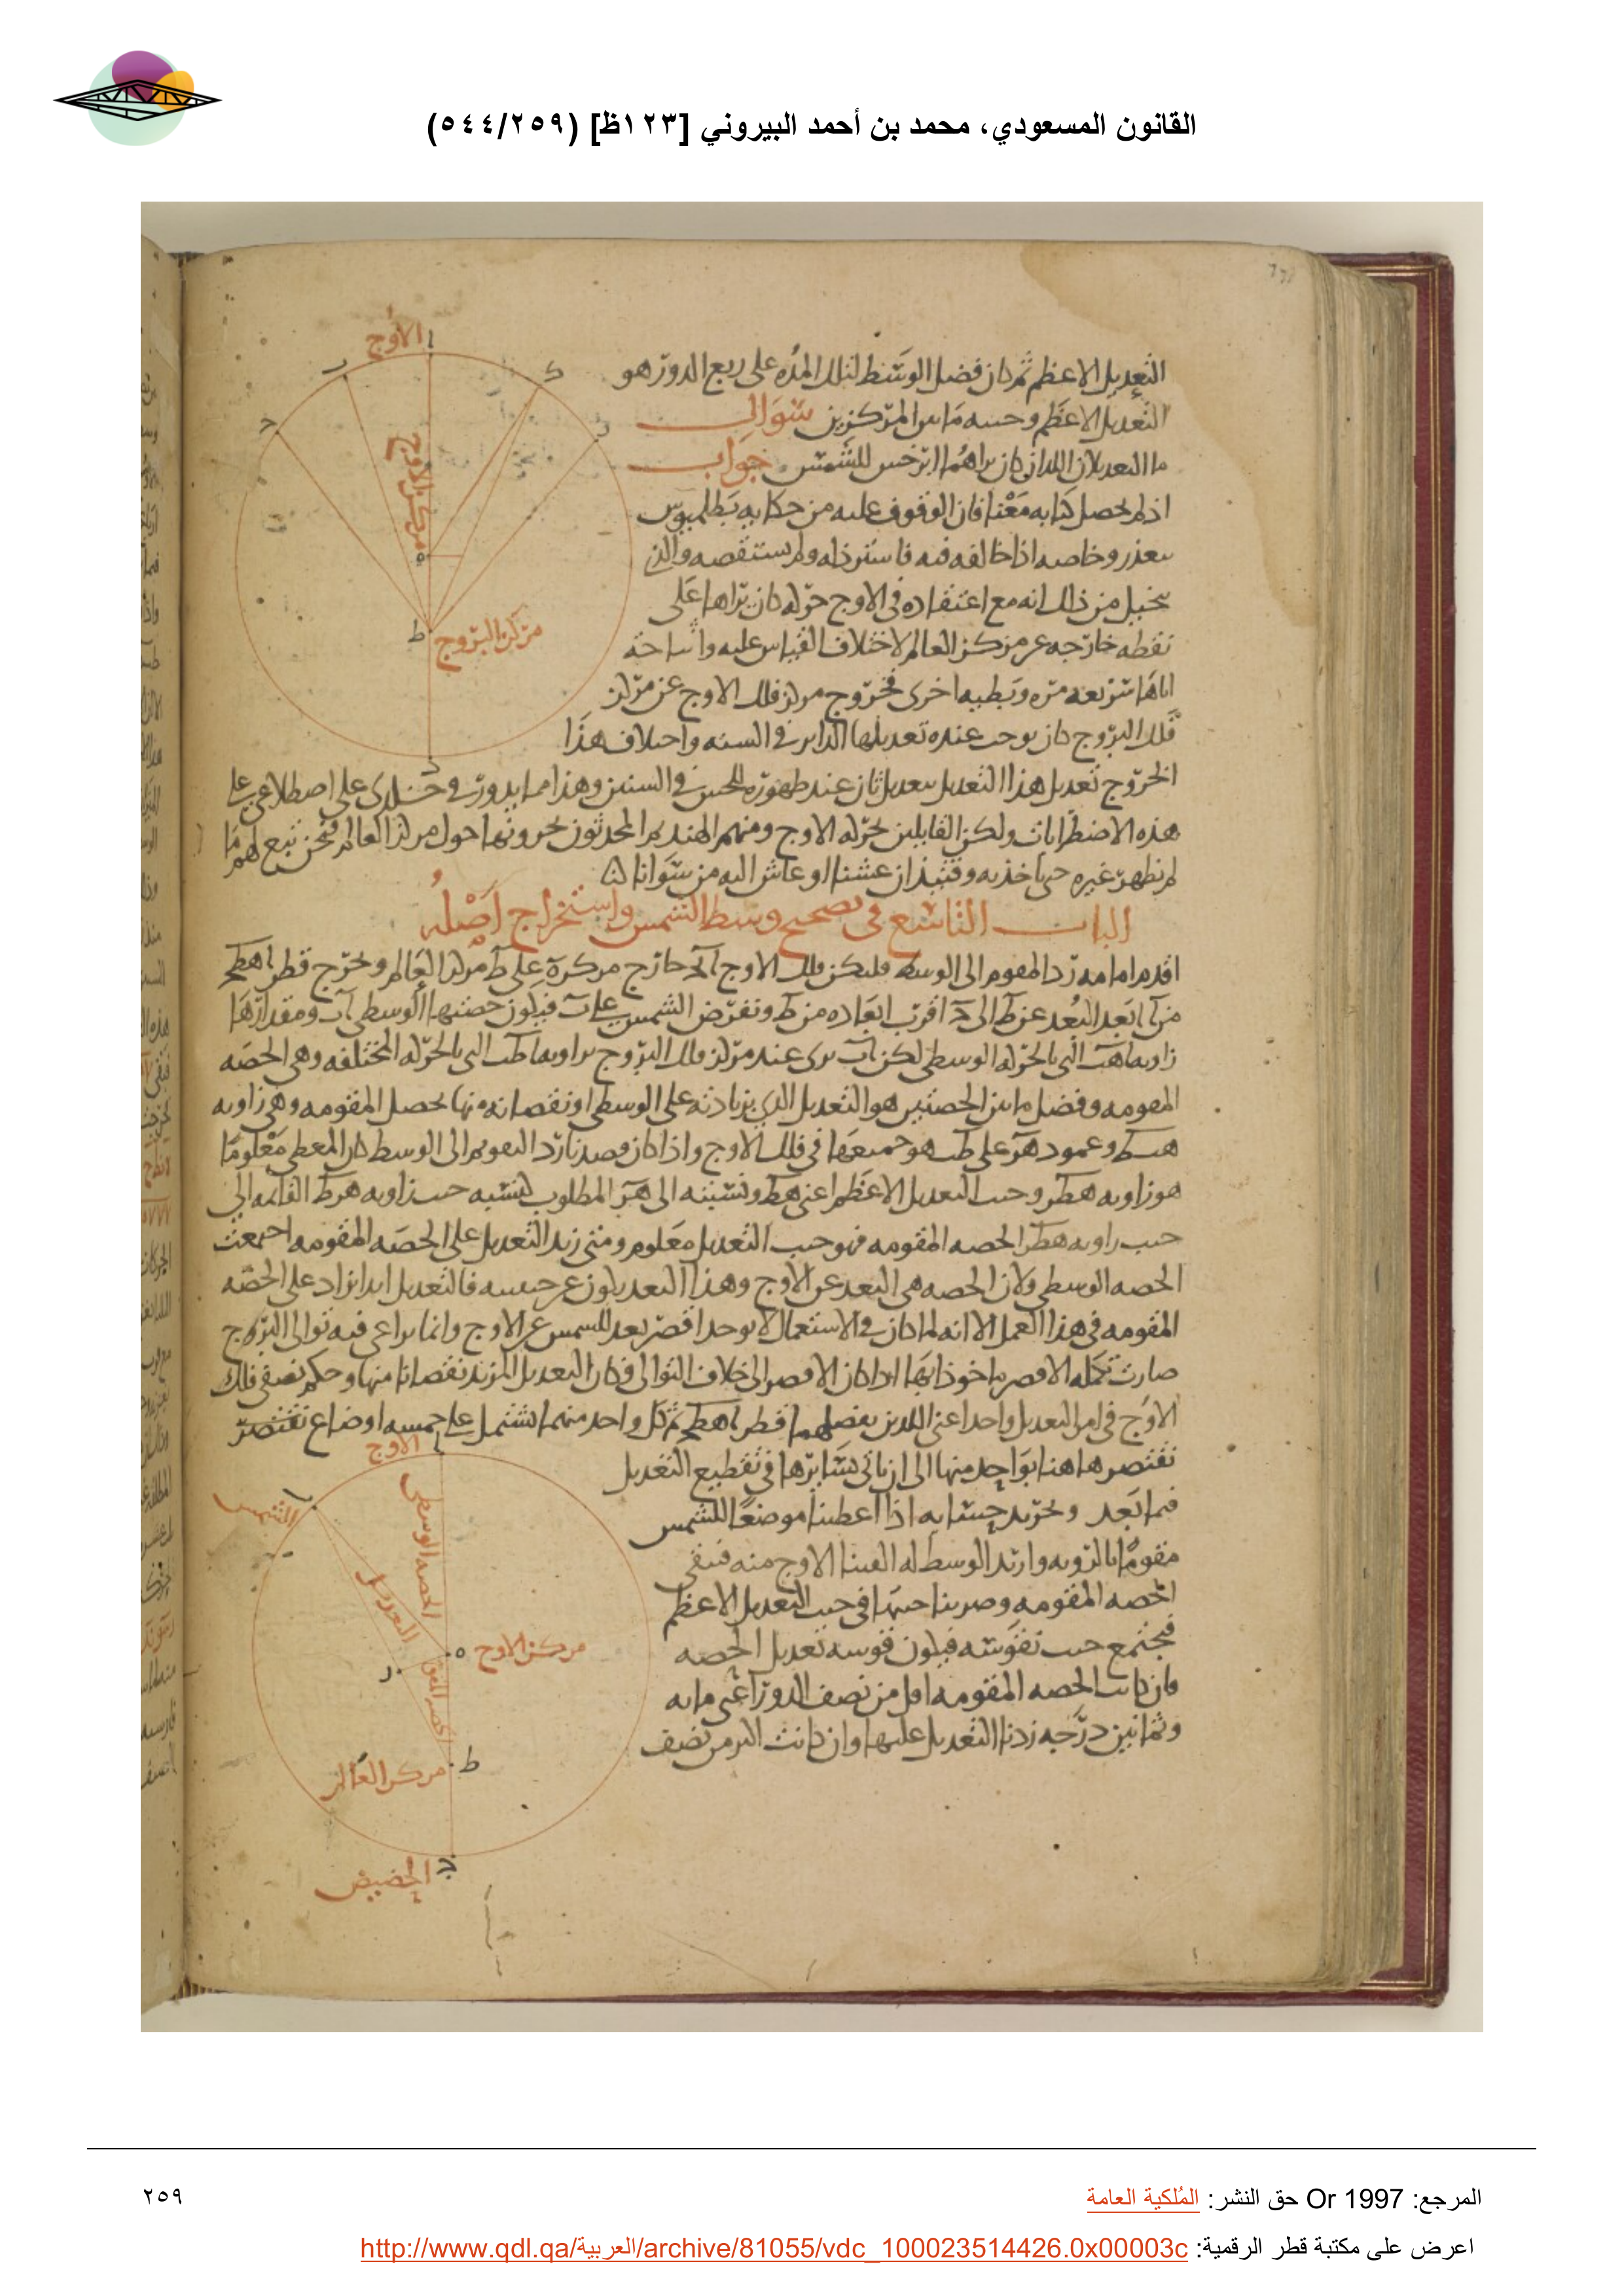 القانون المسعودي، محمد بن أحمد البيروني [١٢٣ظ] (٥٤٤/٢٥٩)
التعديل الاعظم ثم كان فضل الوسط لتلك المده على ربع الدور هو
التعديل الاعظم وجيبه ما بين المركزين سوال
ما التعديلان اللذان كان يراهما ابرخس للشمس جواب
اذ لم يحصل كتابه معنا فان الوقوف عليه من حكايه بطلميوس
يتعذر وخاصه اذا خالفه فيه فاسترذله ولم يستقصه والذي
يتخيل من ذلك انه مع اعتقاده فى الاوج حركه كان يراها على
نقطه خارجه عن مركز العالم لاختلاف القياس عليه
اياها سريعه مره وبطيه اخرى فخروج مركز فلك الاوج عن مركز
فلك البروج كان يوجب عنده تعديلها الداير فى السنه واختلاف هذا
الخروج تعديل هذا التعديل بتعديل ثان عند ظهوره للحس فى السنين وهذا مما يدور فى خلدى على
هذه الاضطرابات ولكن القايلين بحركه الاوج ومنهم الهند ثم المحدثون يجرونها حول مركز العالم فنحن نتبع لهم ما
لم يظهر غيره حتى ناخذ به وقتيذ ان عشنا او عاش اليه من سوانا
الباب التاسع فى تصحيح وسط الشمس واستخراج اصله
اقدم امامه رد المقوم الى الوسط فليكن فلك الاوج خارج مركزه على ط مركز العالم ونخرج قطر اهطح
من ا ابعد البعد عن ط الى ح اقرب ابعاده من ط ونفرض الشمس على ب فيكون حصتها الوسطى اب ومقدارها
زاويه اهب التى بالحركه الوسطى لكن اب يرى عند مركز فلك البروج بزاويه اطب التى بالحركه المختلفه وهى الحصه
المقومه وفضل ما بين الحصتين هو التعديل الذى بزيادته على الوسطى او نقصانه منها يحصل المقومه وهى زاويه
هبط وعمود هر على طب هو جيبها فى فلك الاوج واذا كان قصدنا رد المقوم الى الوسط كان المعطى معلوما
هو زاويه هطر وجيب التعديل الاعظم اعنى هط ونسبته الى هر المطلوب كنسبه جيب زاويه هرط القايمه الى
جيب زاويه هطر الحصه المقومه فهو جيب التعديل معلوم ومتى زيد التعديل على الحصه المقومه اجتمعت
الحصه الوسطى ولان الحصه هى البعد عن الاوج وهذا البعد يكون عن جنبيه فالتعديل ابدا يزاد على الحصه
المقومه فى هذا العمل الا انه لما كان فى الاستعمال لا يوخذ اقصر بعد للشمس عن الاوج وانما يراعى فيه توالى البروج
صارت تكمله الاقصر ماخوذا بها اذا كان الاقصر الى خلاف التوالى فكان التعديل المزيد نقصانا منها وحكم نصفى فلك
الاوج فى امر التعديل واحد اعنى اللذين يفصلهما قطر اهطح ثم كل واحد منهما يشتمل على خمسه اوضاع نقتصر
نقتصر هاهنا بواحد منها الى ان ياتى سايرها فى تقطيع التعديل
فيما بعد ونحرير حسابه اذا اعطينا موضعا للشمس
مقوما بالرويه واريد الوسط له القينا الاوج منه فيبقى
الحصه المقومه وضربنا جيبها فى جيب التعديل الاعظم
فيجتمع جيب نقوسه فيكون قوسه تعديل الحصه
فان كانت الحصه المقومه اقل من نصف الدور اعنى مايه
وثمانين درجه زدنا التعديل عليها وان كانت اكثر من نصف
الاوج
ا
مركز الاوج
ه
ط
مركز البروج
الاوج
ا
ب
الشمس
الحصه الوسطى
التعديل
ه
مركز الاوج
ر
ط
مركز العالم
ح
الحضيض
المرجع: Or 1997 حق النشر: المُلكية العامة
٢٥٩
اعرض على مكتبة قطر الرقمية: http://www.qdl.qa/العربية/archive/81055/vdc_100023514426.0x00003c